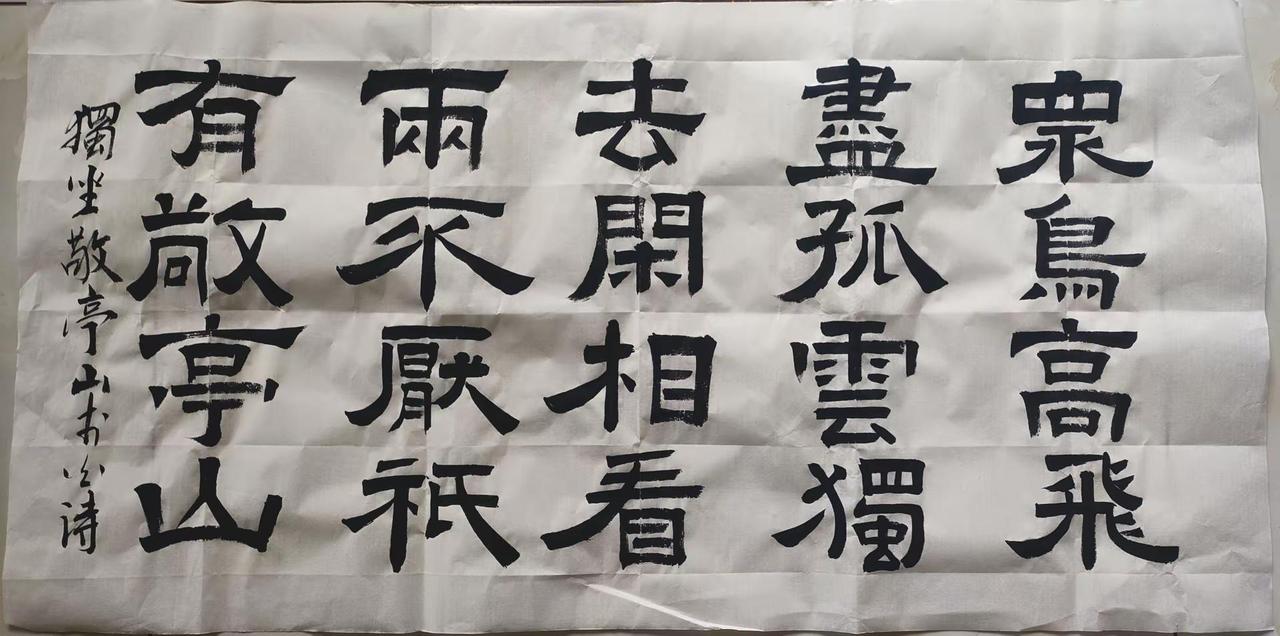 眾鳥高飛
盡孤雲獨
去閑相看
兩不厭祇
有敬亭山
獨坐敬亭山李白诗